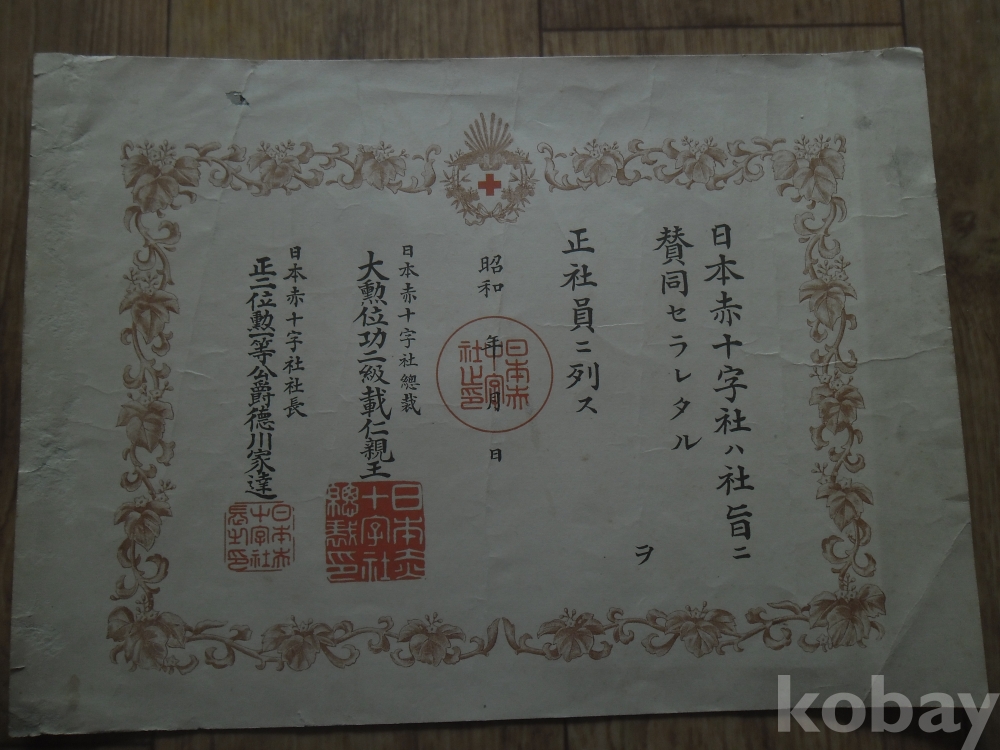 日本赤十字社ハ社旨ニ
賛同セラレタル
ヲ
正社員ニ列ス
昭和 年 月 日
日本赤十字社總裁
大勲位功二級載仁親王
日本赤十字社社長
正二位勲一等公爵德川家達
日本赤十字社之印
日本赤十字社總裁印
日本赤十字社長之印
kobay